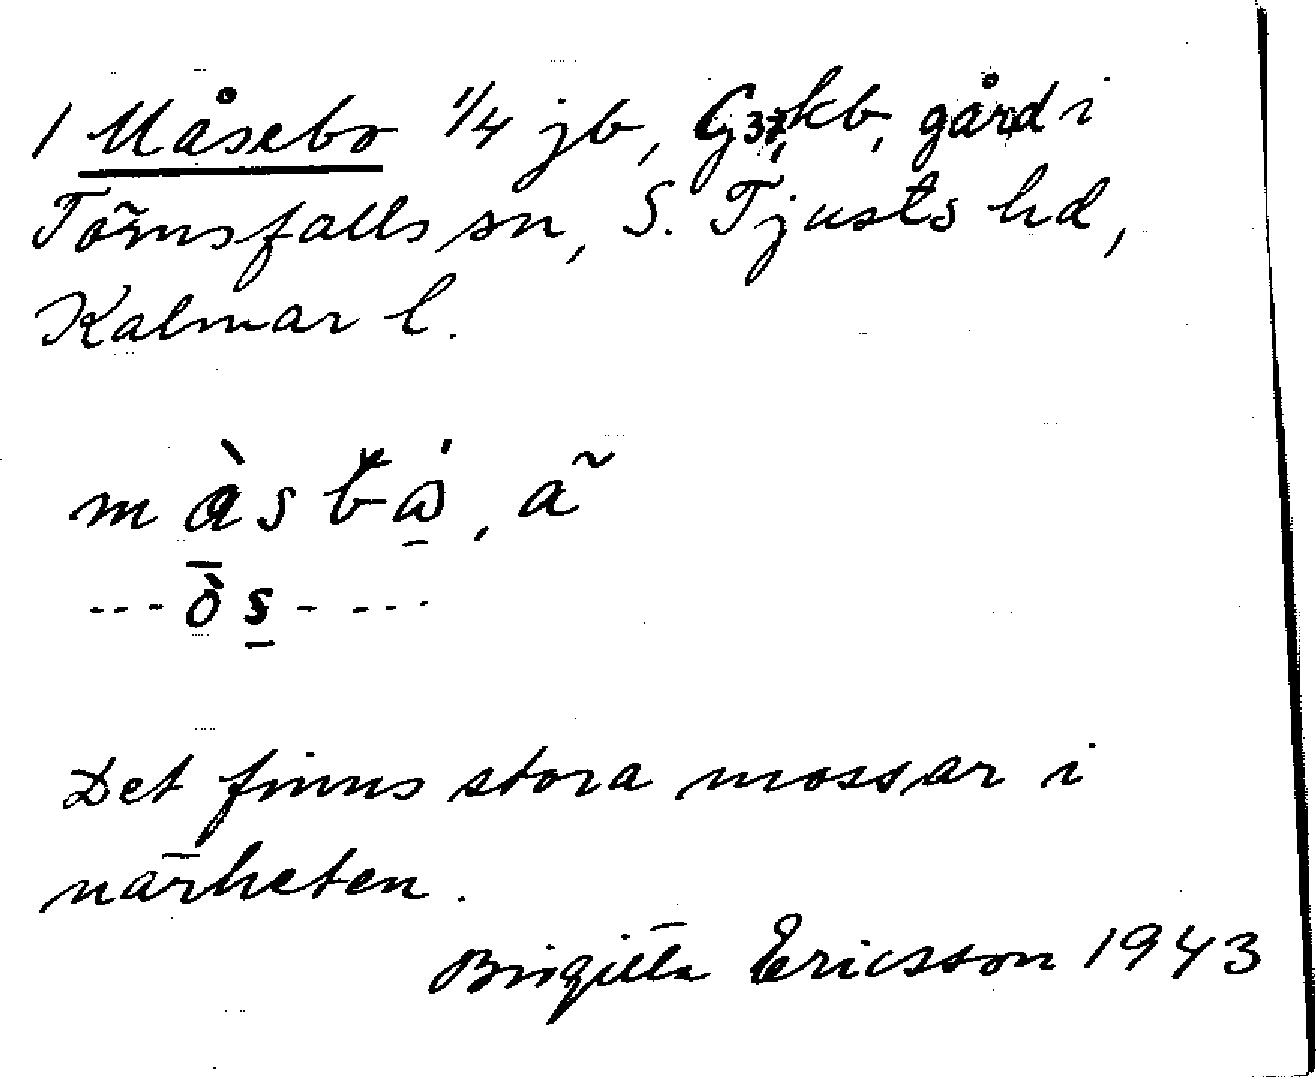 1 Måsebo 1/4 jb, G37, kb, gård i
Törnsfalls sn, S. Tjusts hd,
Kalmar l.
---ò s----
Det finns stora mossar i
närheten.
Birgitta Ericsson 1943